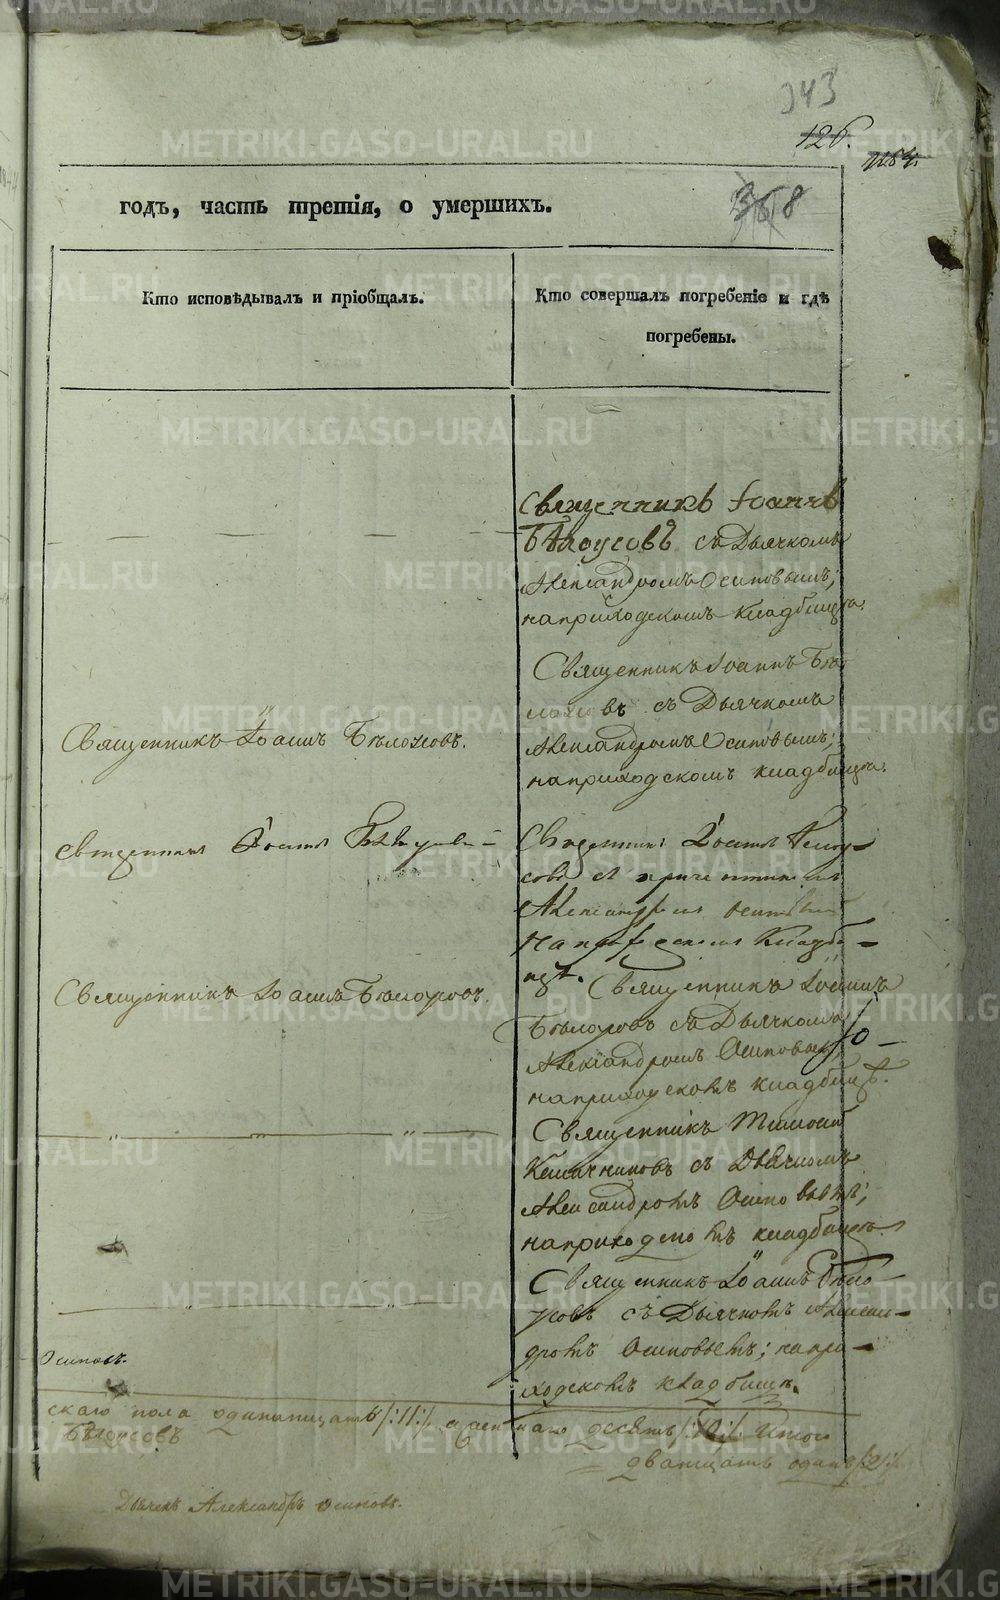 343
126.
годъ, часть третія, о умершихъ.
Кто исповѣдывалъ и пріобщалъ.
Кто совершалъ погребеніе и гдѣ
погребены.
Священникъ Іоаннъ
Бѣлоусовъ съ Дьячкомъ
Александромъ Осиповымъ;
на приходскомъ кладбищѣ.
Священникъ Іоаннъ Бѣ-
лоусовъ съ Дьячкомъ
Александромъ Осиповымъ;
на приходскомъ кладбищѣ.
Священникъ Іоаннъ Бѣлоусовъ.
Священникъ Іоаннъ Бѣлоусовъ
Священникъ Іоаннъ Белоу-
совъ съ причетникомъ
Александромъ Осиповымъ
на приходскомъ кладби-
щѣ.
Священникъ Іоаннъ Бѣлоусовъ.
Священникъ Іоаннъ
Бѣлоусовъ съ Дьячкомъ
Александромъ Осиповым
на приходскомъ кладбищѣ.
Священникъ
съ Дьячкомъ
Александромъ Осиповымъ;
на приходскомъ кладбищѣ
Священникъ Іоаннъ Бѣло-
усовъ съ Дьячкомъ Алексан-
дромъ Осиповымъ; на при-
ходскомъ кладбищѣ.
Осиповъ.
скаго пола одинатцать /:11:/, а женскаго десять /:10:/ Итого
Бѣлоусовъ
двадцать одинъ /:21:/.
Дьячекъ Александръ Осиповъ.
METRIKI.GASO-URAL.RU